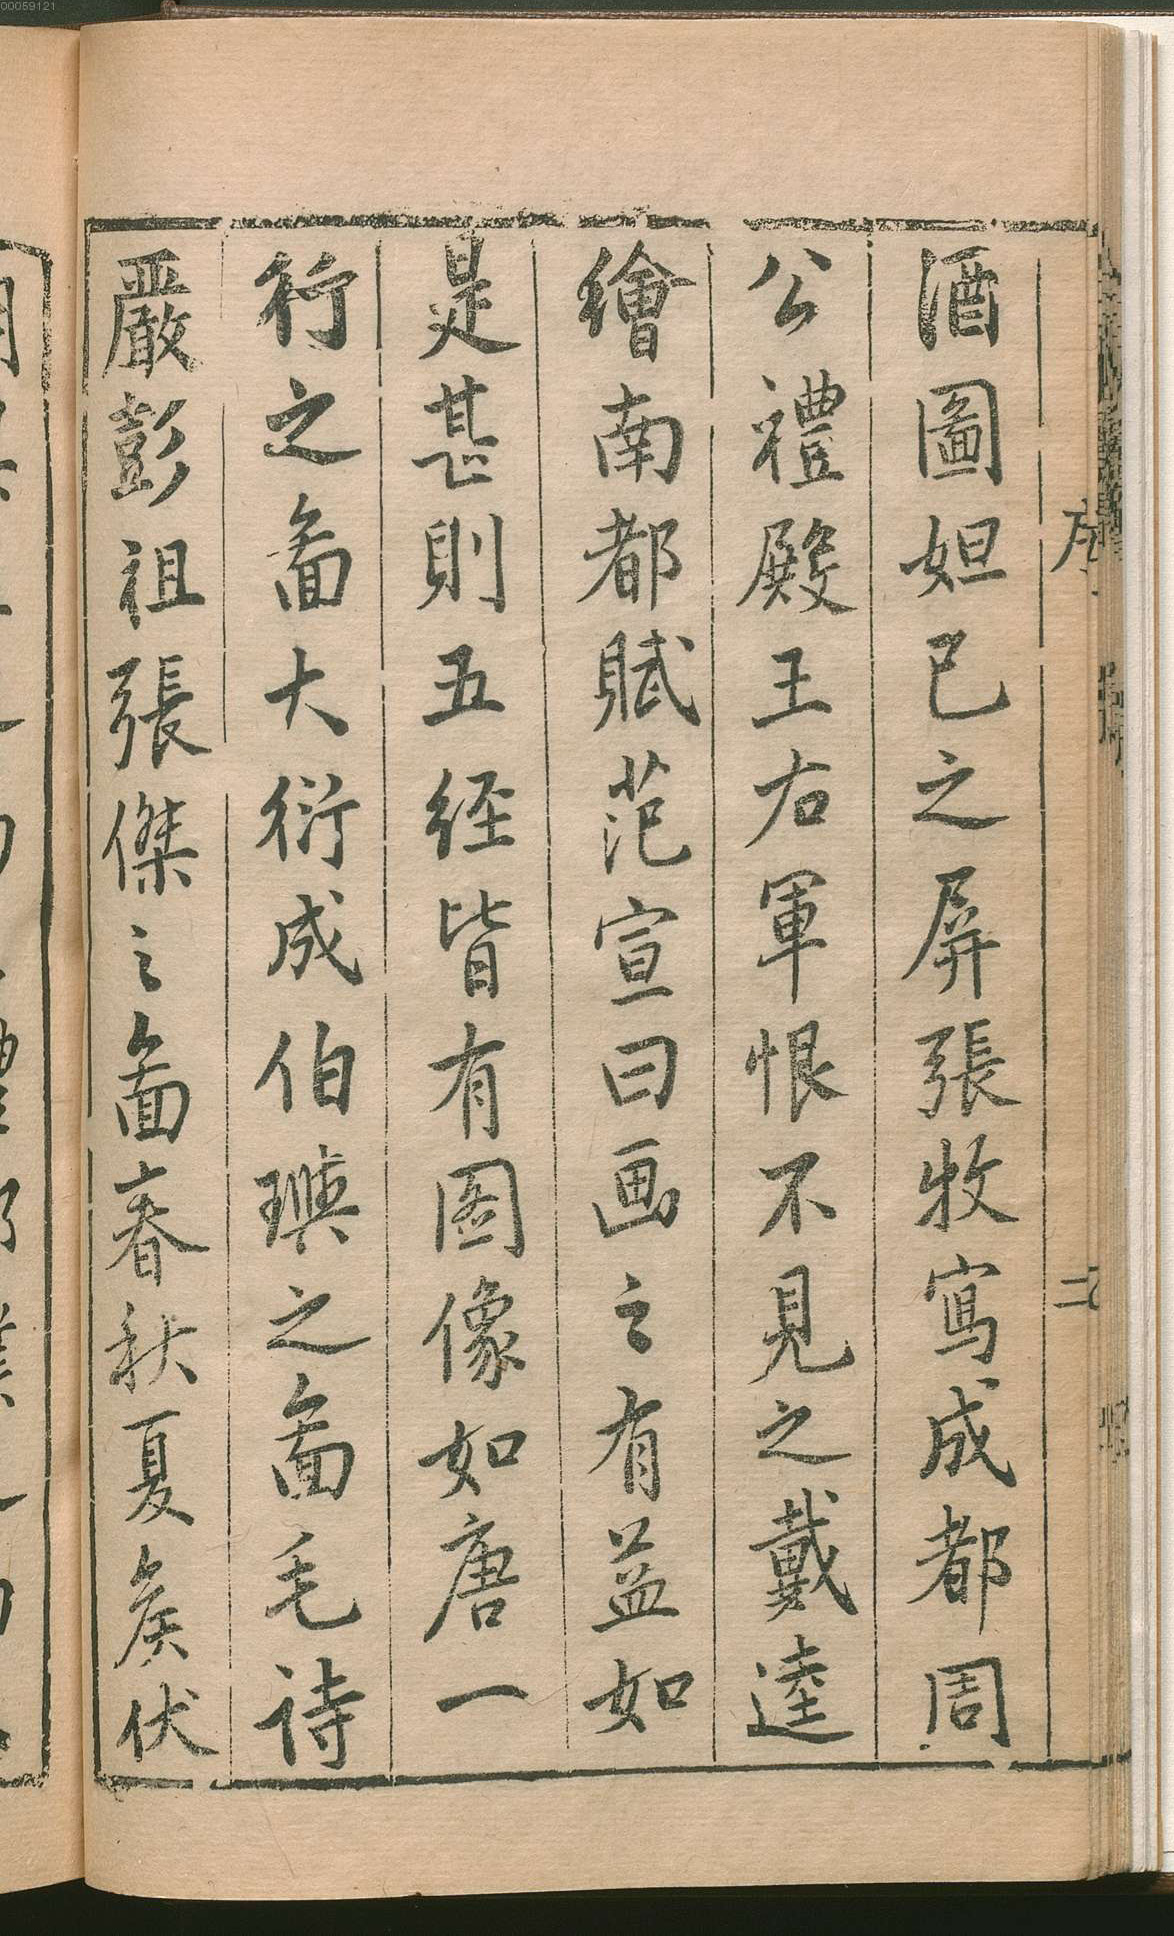 酒圖妲己之屏張牧寫成都周
公禮殿王右軍恨不見之戴逵
繪南都賦范宣曰画之有益如
是甚則五經皆有圖像如唐一
行之啚大衍成伯璵之啚毛詩
嚴彭祖張傑之啚春秋夏侯伏
序
二
00059121